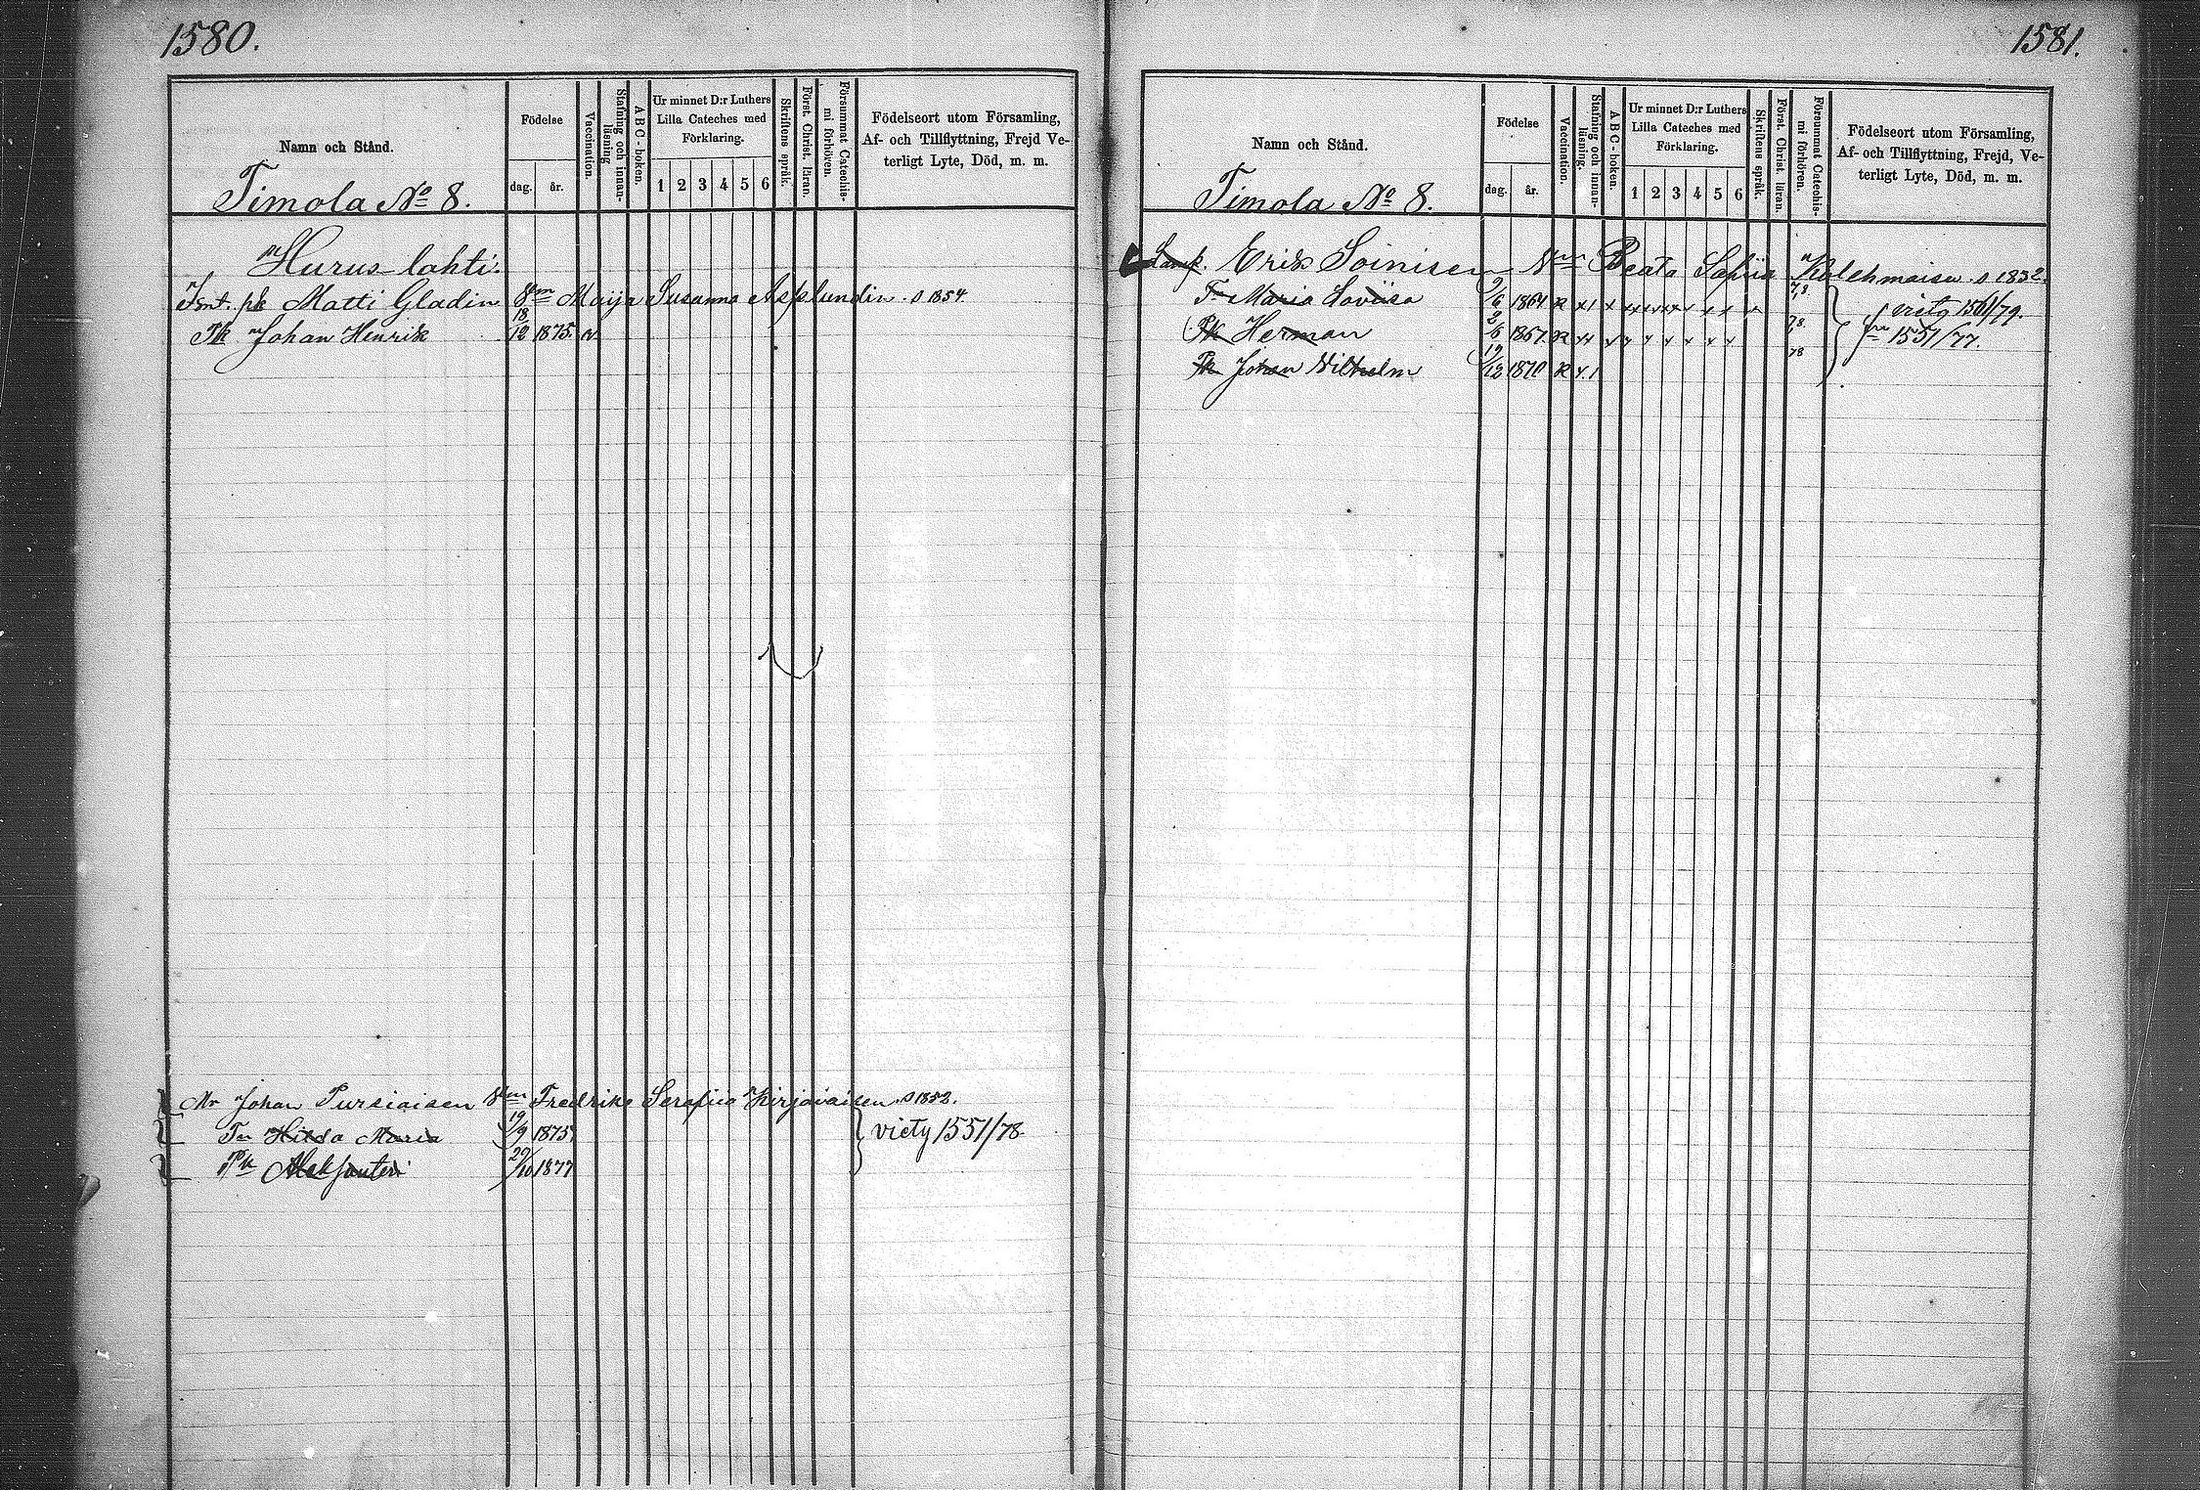 1580.
Namn och Stånd.
Timola No 8.
Födelse
dag.
år.
Vaccination.
Stafning och innanläsning
ABC-boken.
Ur minnet D:r Luthers
Lilla Cateches med
Förklaring.
1 2 3 4 5 6
Skriftens språk.
Först. Christ. läran.
Försummat Catechismi förhören.
Födelseort utom Församling,
Af- och Tillflyttning, Frejd Ve-
terligt Lyte, Död, m. m.
Hurus-lahti.
Matti Gladin Maija Susanna Asplundin s 1854.
Pk Johan Henrik 18/12 1875. v
Johan Pursiaisen Fredrika Serafiia Kirjavaisen s 1852.
Hilda Maria 19/9 1875.
viety 1551/78.
Pk Aleksanteri 29/10 1877
1581.
Namn och Stånd.
Timola No 8.
Födelse
dag.
år.
Vaccination.
Stafning och innanläsning.
ABC-boken.
Ur minnet D:r Luthers
Lilla Cateches med
Förklaring.
1 2 3 4 5 6
Skriftens språk.
Först. Christ. läran.
Försummat Catechismi förhören.
Födelseort utom Församling,
Af- och Tillflyttning, Frejd, Ve-
terligt Lyte, Död, m. m.
Erik Soinisen Beata Sofiia Kolehmaisen s 1832.
Maria Loviisa 1864 R
viety 1561/79.
Pk Herman 1867. R
1551/77.
Pk Johan Vilhelm 19/12 1870 R 78